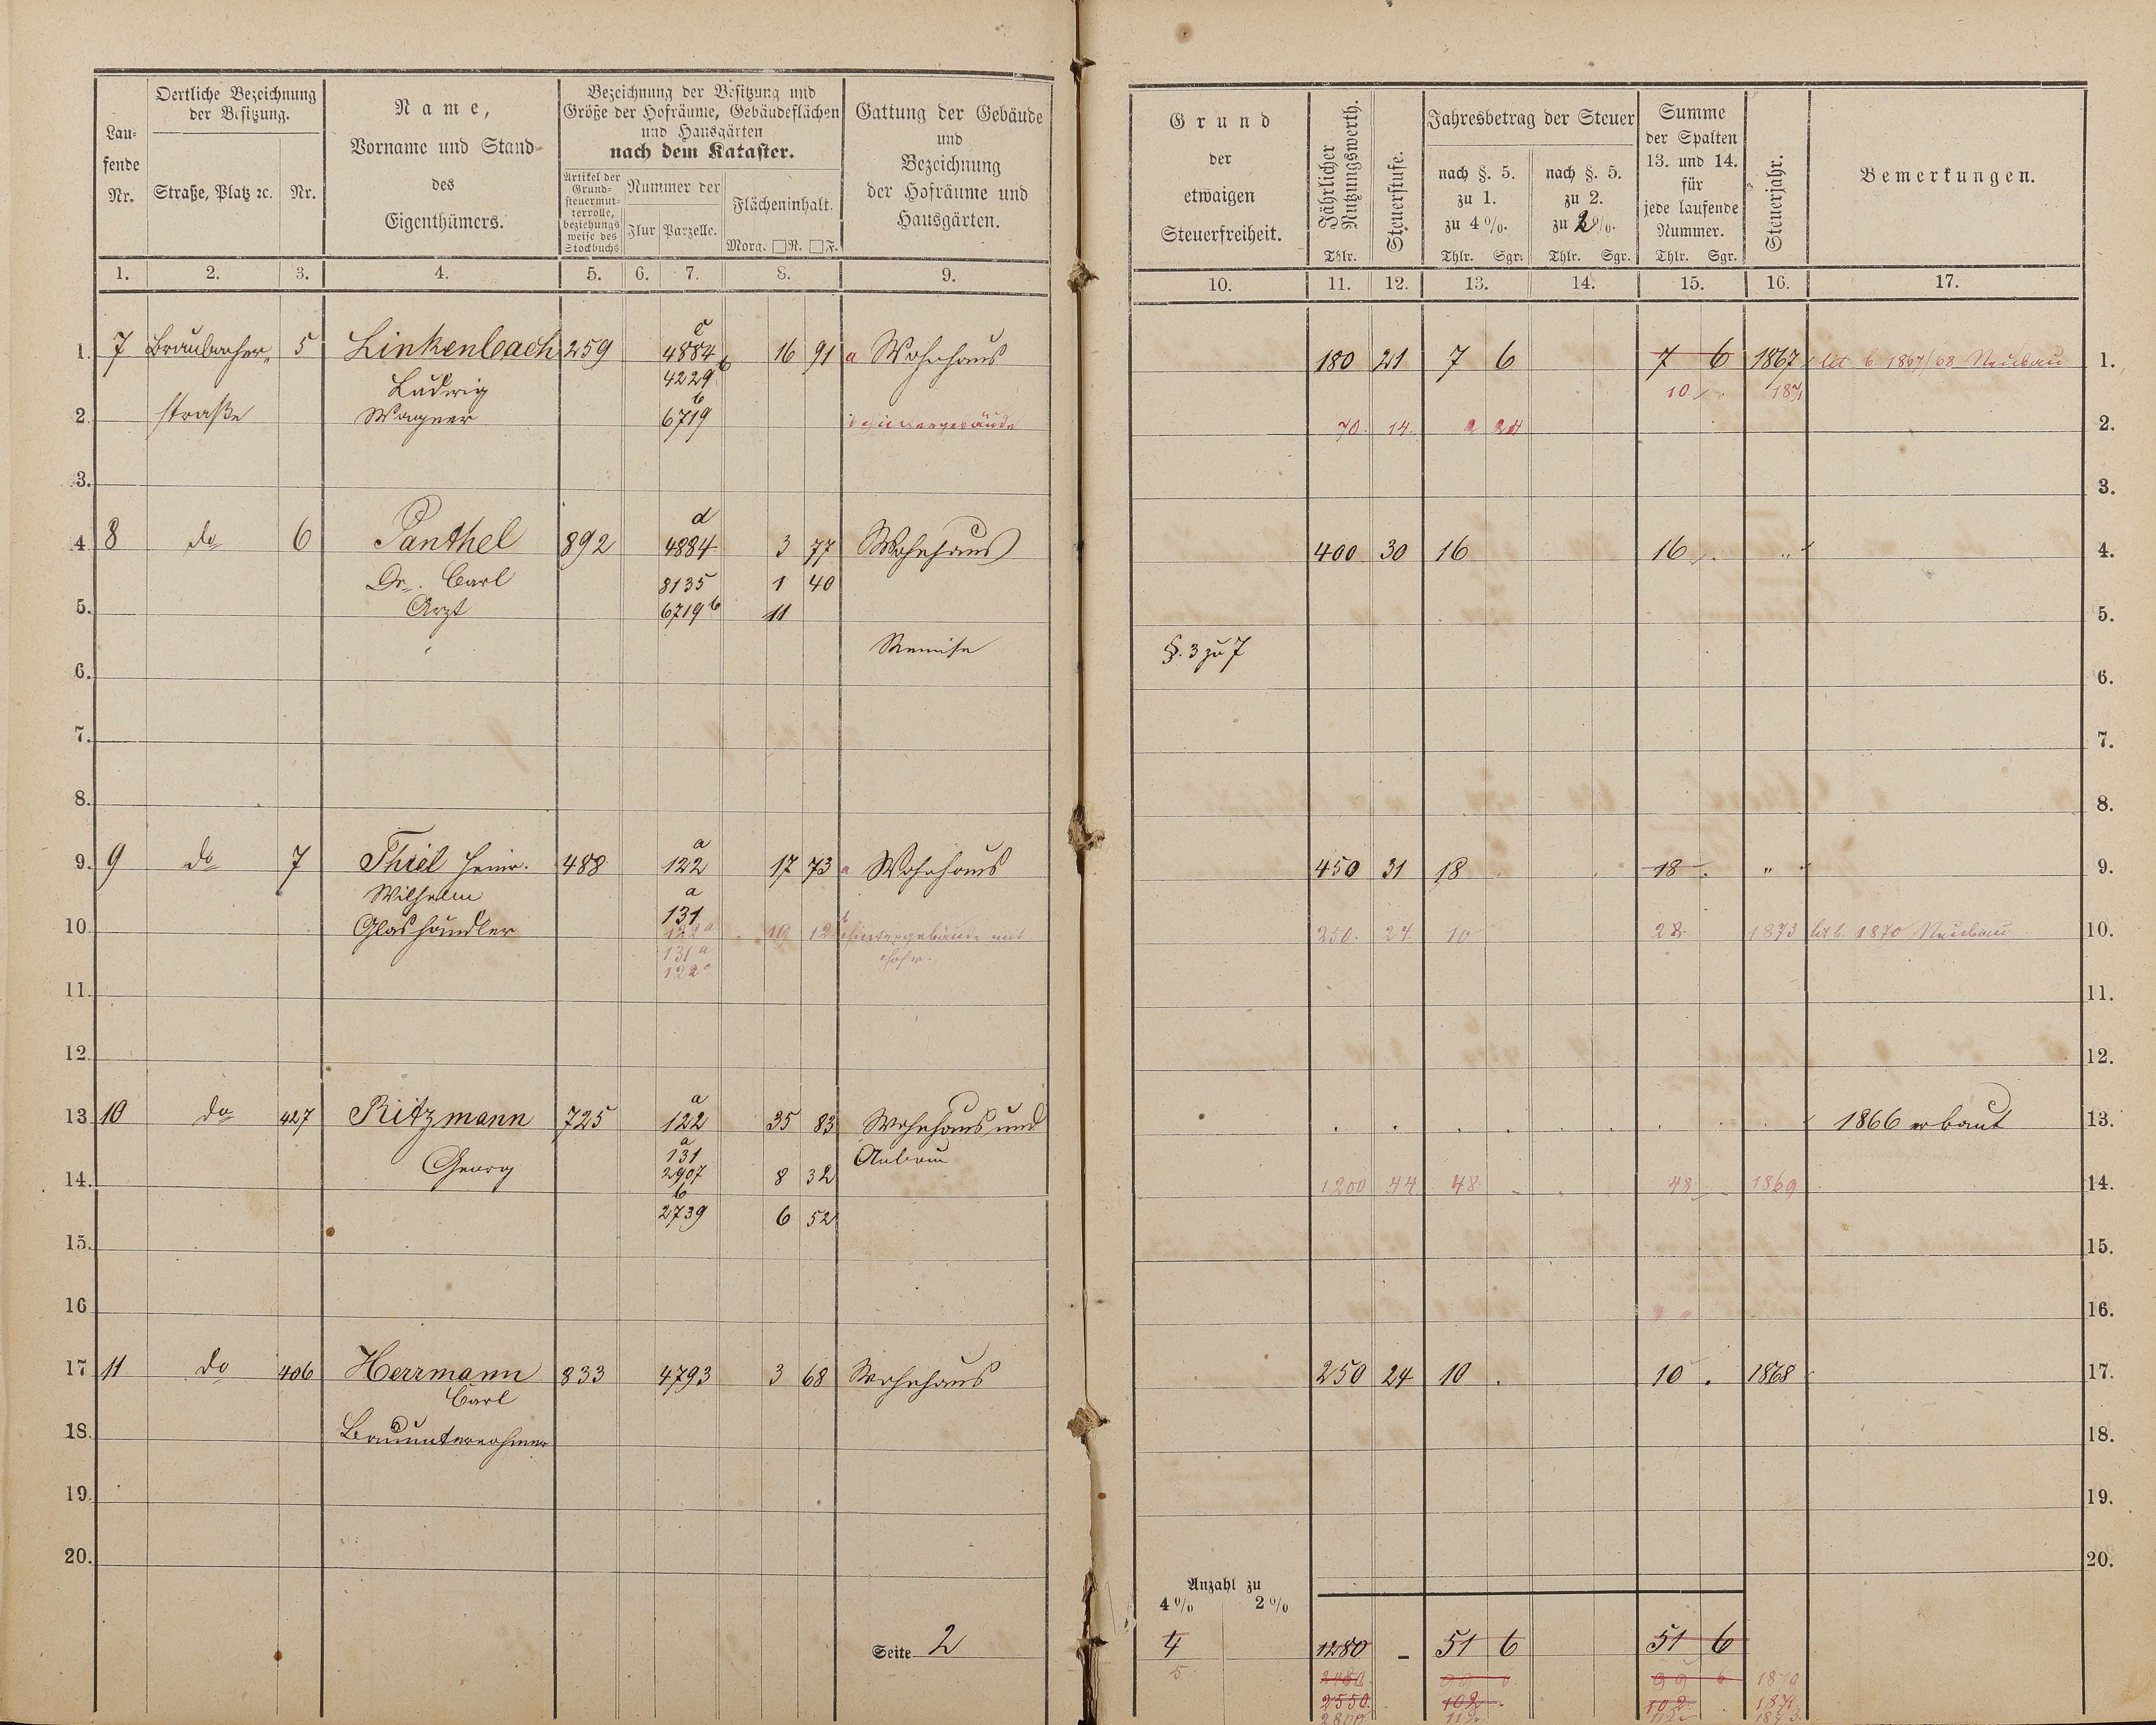 Laufende Nr.
Oertliche Bezeichnung der Besitzung.
Straße, Platz ꝛc.
Nr.
Name,
Vorname und Stand
des
Eigenthümers.
Bezeichnung der Besitzung und
Größe der Hofräume, Gebäudeflächen
und Hausgärten
nach dem Kataster.
Artikel der Grundsteuermutterrolle, beziehungsweise des Stockbuchs
Nummer der
Flur
Parzelle.
Flächeninhalt.
Morg. □R. □F.
Gattung der Gebäude
und
Bezeichnung
der Hofräume und
Hausgärten.
Grund
der
etwaigen
Steuerfreiheit.
Jährlicher Nutzungswerth.
Thlr.
Steuerstufe.
Jahresbetrag der Steuer
nach §. 5. zu 1. zu 4%.
Thlr. Sgr.
nach §. 5. zu 2. zu 2%.
Thlr. Sgr.
Summe
der Spalten
13. und 14.
für
jede laufende
Nummer.
Thlr. Sgr.
Steuerjahr.
Bemerkungen.
1. 2. 3. 4. 5. 6. 7. 8. 9. 10. 11. 12. 13. 14. 15. 16. 17.
1. 7 Braubacher- 5 Linkenbach 259 c 4884 16 91 a Wohnhaus 180 21 7 6 7 6 1867 lit. b 1867/68 Neubau 1.
Ludwig 4229 b 10 1871
2. straße Wagner b 6719 b Hintergebäude 70 14 2 24 2.
3. 3.
4. 8 do 6 Panthel 892 d 4884 3 77 Wohnhaus 400 30 16 16 " 4.
Dr. Carl 8135 1 40
5. Arzt 6719 b 11 5.
Remise §. 3 zu 7
6. 6.
7. 7.
8. 8.
9. 9 do 7 Thiel Heinr. 488 a 122 17 73 a Wohnhaus 450 31 18 18 " 9.
Wilhelm a
10. Glashändler 131 10 12 b Hintergebäude mit 250 24 10 28 1873 lit b. 1870 Neubau 10.
131 a Hofr.
122
11. 11.
12. 12.
13. 10 do 427 Ritzmann 725 a 122 35 83 Wohnhaus und 1866 erbaut 13.
a 131 Anbau
14. Georg 2907 8 32 1200 44 48 48 1869 14.
b 2739 6 52
15. 15.
16. 16.
17. 11 do 406 Herrmann 833 4793 3 68 Wohnhaus 250 24 10 10 1868 17.
Carl
18. Bauunternehmer 18.
19. 19.
20. 20.
Anzahl zu
4% 2%
Seite 2
4 1280 – 51 6 51 6
5 99 6 1870
2550 102 102 1871
2800 112 112 1873